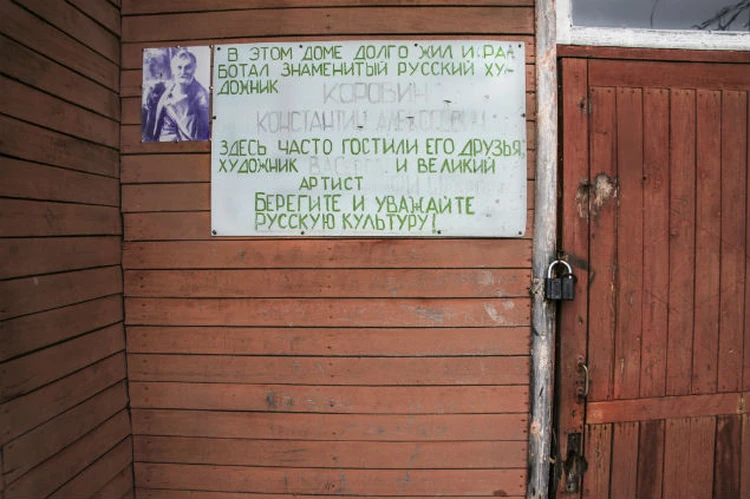 В ЭТОМ ДОМЕ ДОЛГО ЖИЛ И РАБ
БОТАЛ ЗНАМЕНИТЫЙ РУССКИЙ ХУ-
ДОЖНИК КОРОВИН
КОНСТАНТИН АЛЕКСЕЕВИЧ
ЗДЕСЬ ЧАСТО ГОСТИЛИ ЕГО ДРУЗЬЯ
ХУДОЖНИК И ВЕЛИКИЙ
АРТИСТ
БЕРЕГИТЕ И УВАЖАЙТЕ
РУССКУЮ КУЛЬТУРУ!